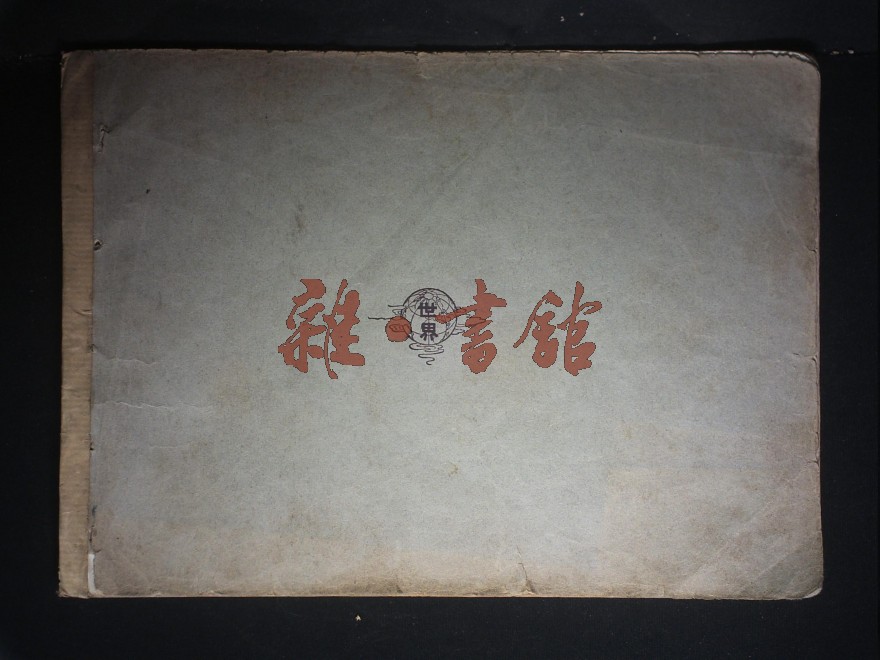 雜·書舘
世界